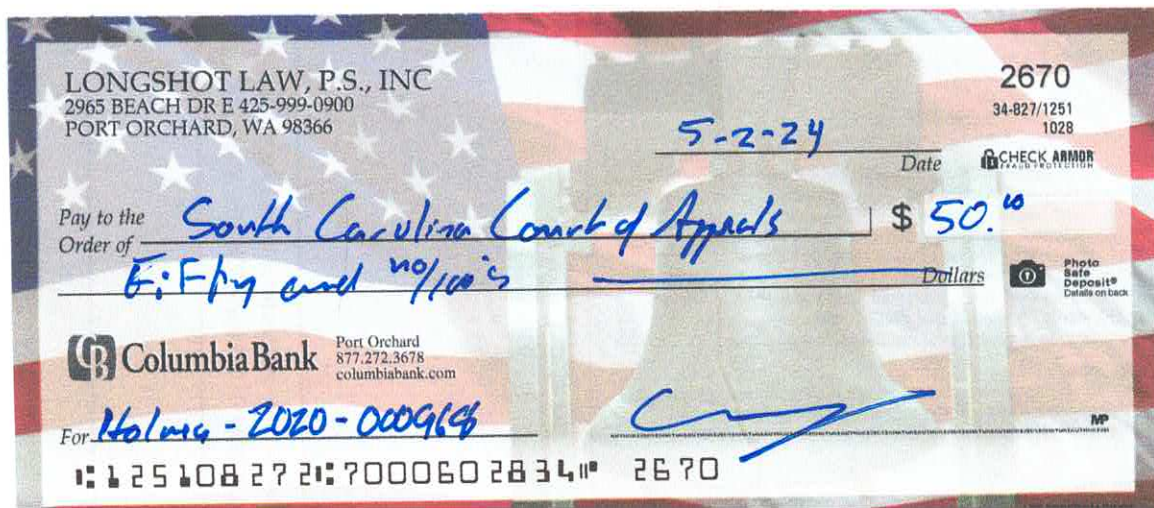 LONGSHOT LAW, P.S., INC
2965 BEACH DR E 425-999-0900
PORT ORCHARD, WA 98366
2670
34-827/1251
1028
5-2-24
Date
CHECK ARMOR
FRAUD PROTECTION
Pay to the
Order of
South Carolina Court of Appeals
$ 50.
and no/100's
Dollars
Photo
Safe
Deposit®
Details on back
CB ColumbiaBank
Port Orchard
877.272.3678
columbiabank.com
For
- 2020 -
MP
⑆125108272⑆7000602834⑈ 2670